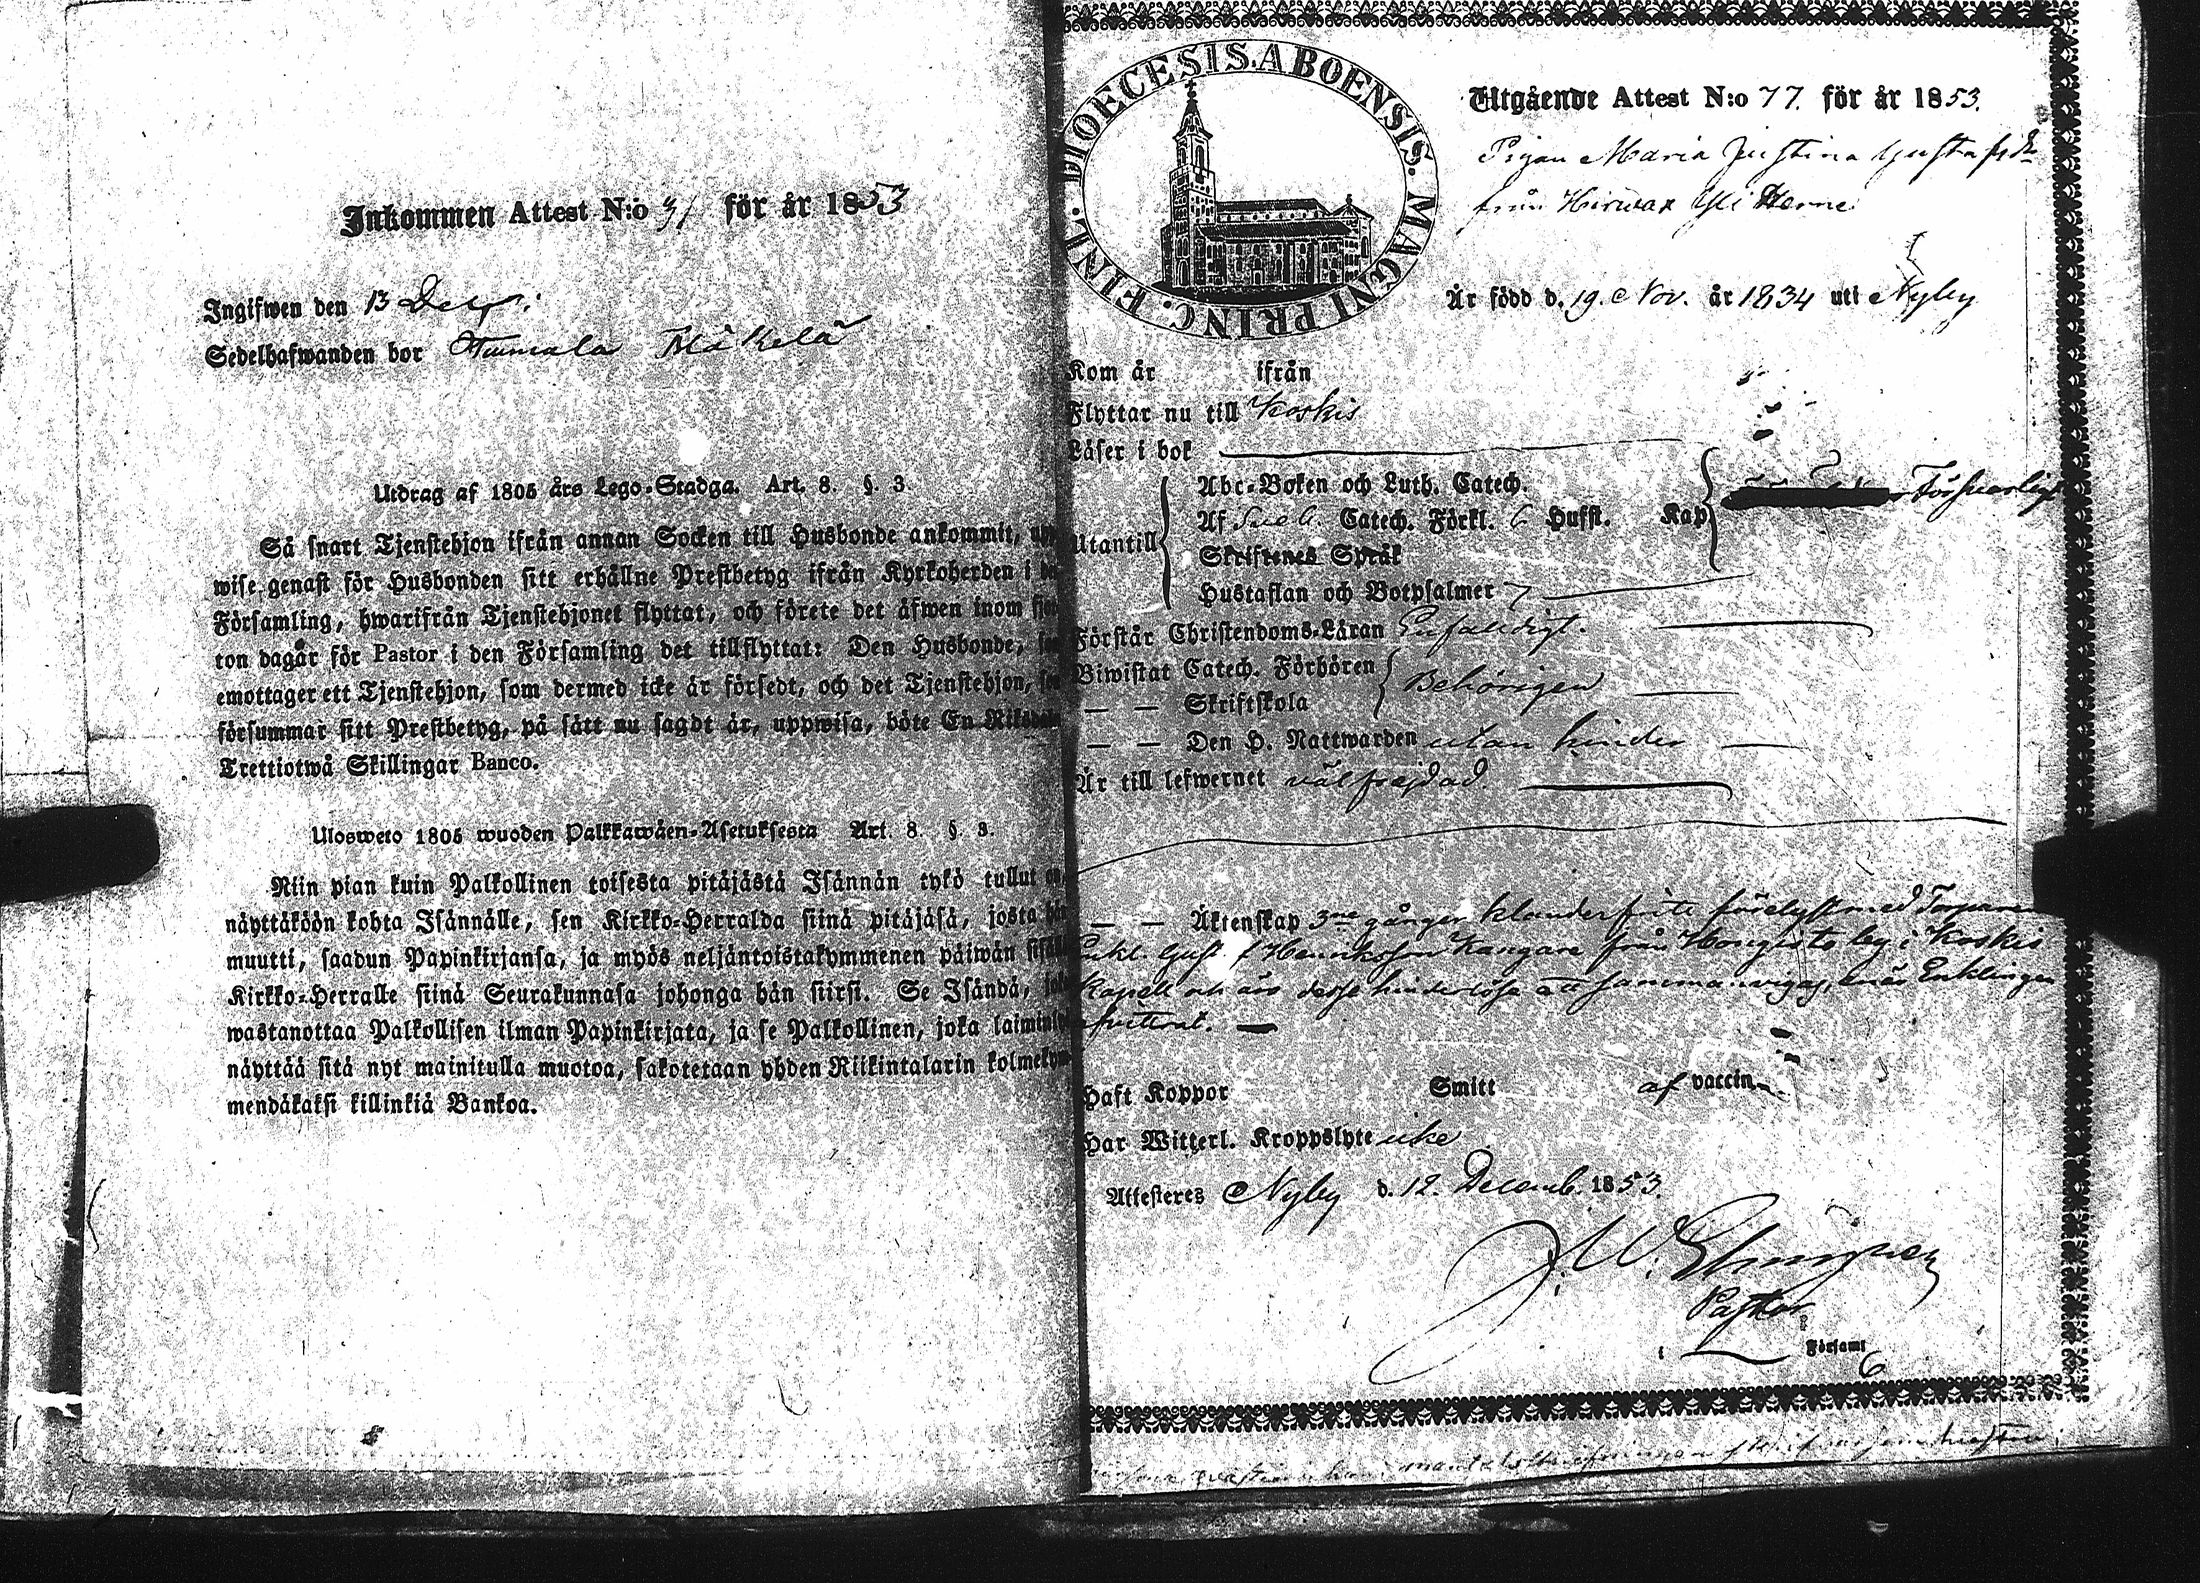 Inkommen Attest N:o 31 för år 1853
Ingifwen den 13 Dec.
Sedelhafwanden bor Tuimala Mäkelä
Utdrag af 1805 års Lego-Stadga. Art. 8. §. 3.
Så snart Tjenstehjon ifrån annan Socken till Husbonde ankommit,
wise genast för Husbonden sitt erhållne Prestbetyg ifrån Kyrkoherden i
Församling, hwarifrån Tjenstehjonet flyttat, och förete det äfwen inom
ton dagar för Pastor i den Församling det tillflyttat: Den Husbonde,
emottager ett Tjenstehjon, som dermed icke är försedt, och det Tjenstehjon,
försummar sitt Prestbetyg, på sätt nu sagdt är, uppwisa, böte En Riksdaler
Trettiotwå Skillingar Banco.
Ulosweto 1805 wuoden Palkkawäen-Asetuksesta Art. 8. §. 3.
Niin pian kuin Palkollinen toisesta pitäjästä Isännän tykö tullut on,
näyttäköön kohta Isännälle, sen Kirkko-Herralda siinä pitäjäsä, josta hän
muutti, saadun Papinkirjansa, ja myös neljäntoistakymmenen päiwän
Kirkko-Herralle siinä Seurakunnasa johonga hän siirsi. Se Isändä, joka
wastanottaa Palkollisen ilman Papinkirjata, ja se Palkollinen, joka
näyttää sitä nyt mainitulla muotoa, sakotetaan yhden Riikintalarin
mendäkaksi killinkiä Bankoa.
FINL. DIOECESIS. ABOENSIS. MAGNI PRINC.
Utgående Attest N:o 77. för år 1853.
Pigan Maria Justina Gustafsdr
från Hirwax Yli Henne
Är född d. 19. Nov. år 1834 uti Nyby
Kom år ifrån
Flyttar nu till Koskis
Läser i bok
Utantill
Abc-Boken och Luth. Catech.
Af Sveb. Catech. Förkl. 6 Hufst. Kap Försvarligt
Skriftenes Språk
Hustaflan och Botpsalmer 7
Förstår Christendoms-Läran Enfaldigt.
Biwistat Catech. Förhören Behörigen
— — Skriftskola
— — Den H. Nattwarden utan hinder
Är till lefwernet välfrejdad.
— — Äktenskap 3ne gånger klanderfritt förelyst med Torparen
Enkl. Gust. f Henriksson Kangare från Hongisto by i Koskis
Kapell och äro desse hinderlöse att sammanvigas, enär Enklingen
Haft Koppor Smitt af vaccin
Har Witterl. Kroppslyte icke
Attesteres Nyby d. 12. Decemb. 1853.
Pastor
i Församl
6